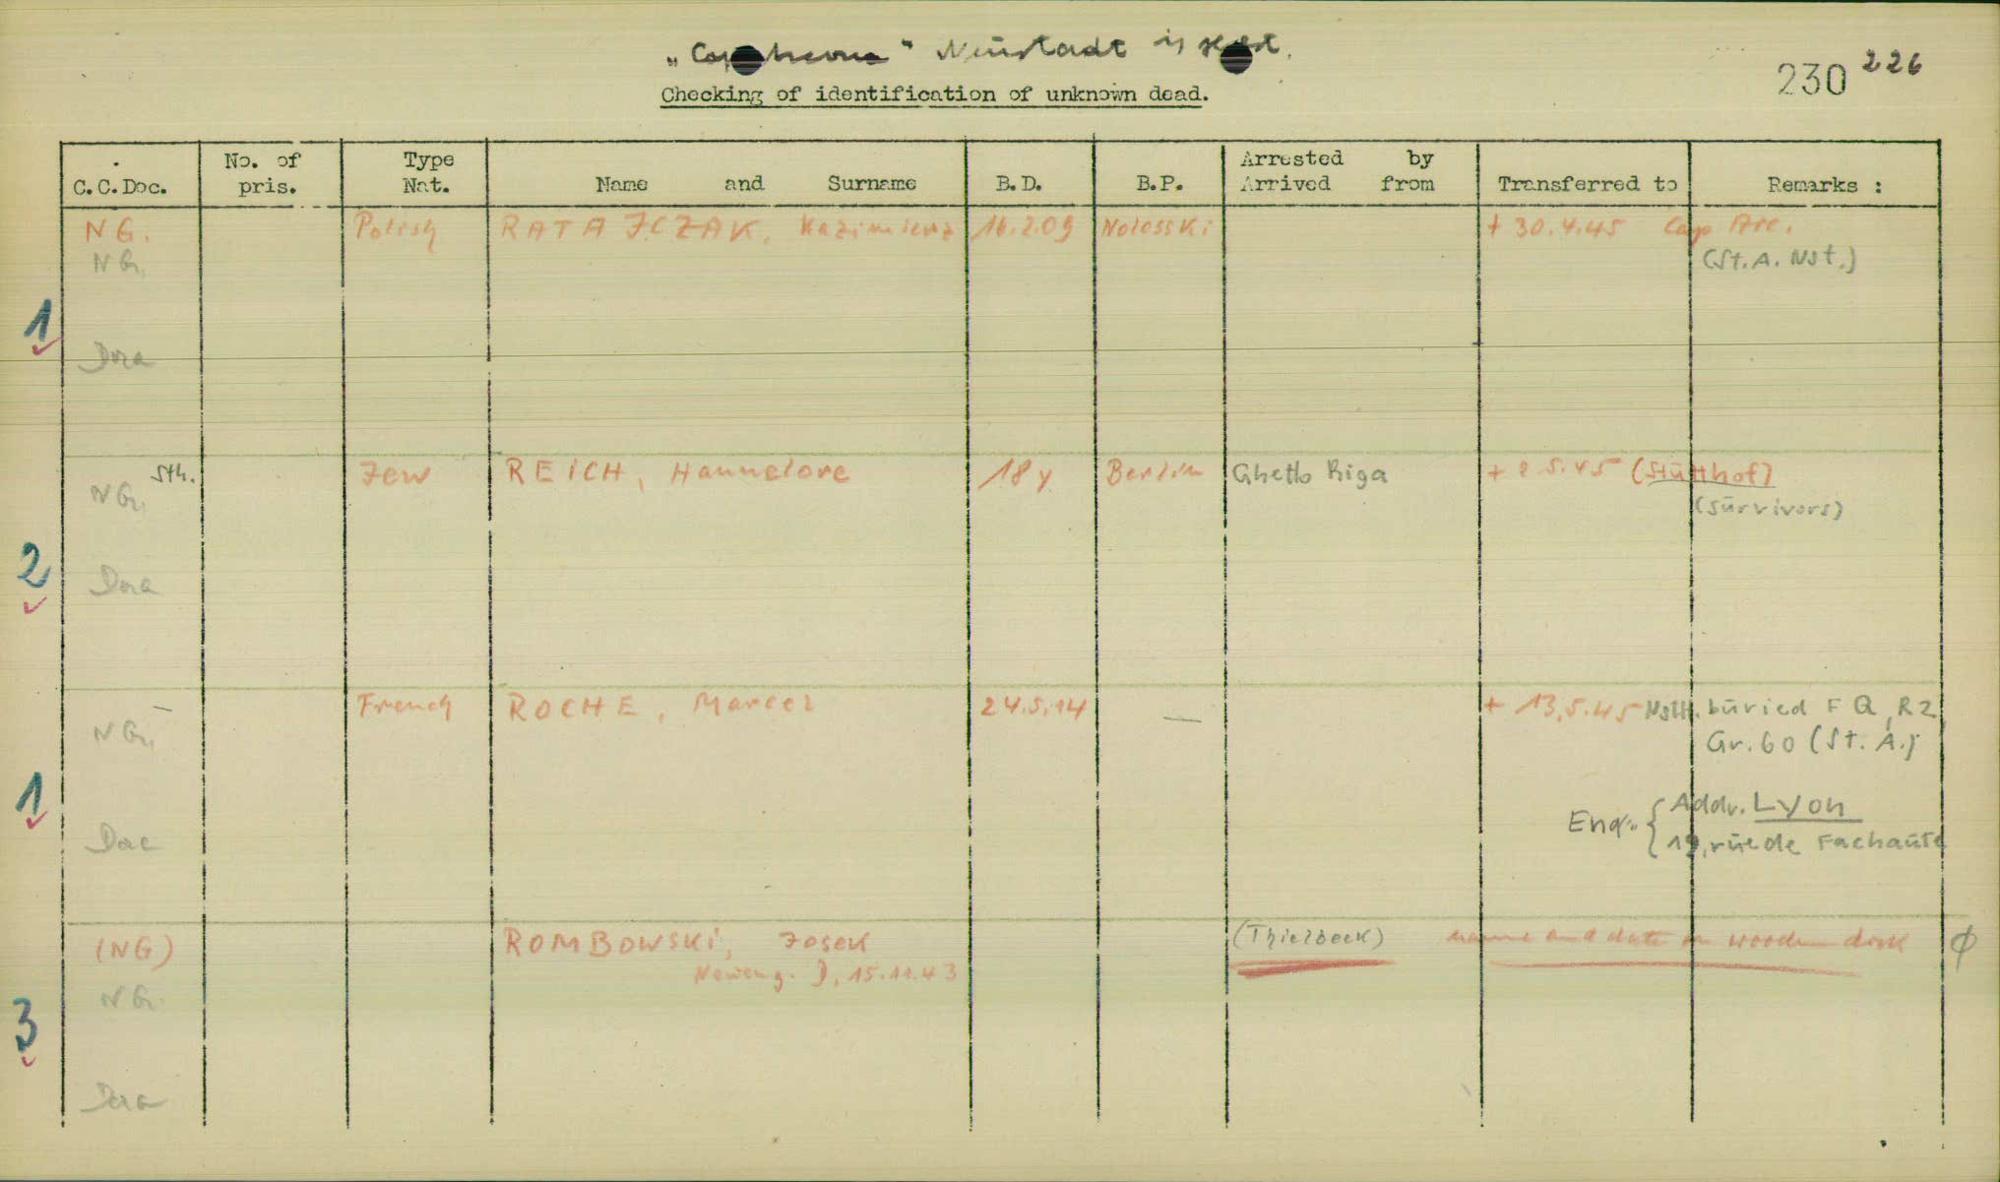 " Neustadt in
Checking of identification of unknown dead.
230 226
C.C.Doc. No. of pris. Type Nat. Name and Surname B.D. B.P. Arrested by Arrived from Transferred to Remarks :
NG. Polish RATAJCZAK, Kazimierz 16.2.09 + 30.4.45 Cap Arc.
NG. (St. A. Nst.)
1
Dora
Sth. Jew REICH, Hannelore 18 y Berlin Ghetto Riga + 2 5.45 (Stutthof)
NG. (survivors)
2
Dora
NG. French ROCHE, Marcel 24.5.14 — + 13.5.45 Nstt. buried F Q, R2
Gr. 60 (St. A.)
1
Enq. { Addr. Lyon
19, rue de Fachaute
(NG) ROMBOWSKI, Josek (Thielbeck) name and date on wooden
Neueng. D, 15.11.43
NG.
3
Dora